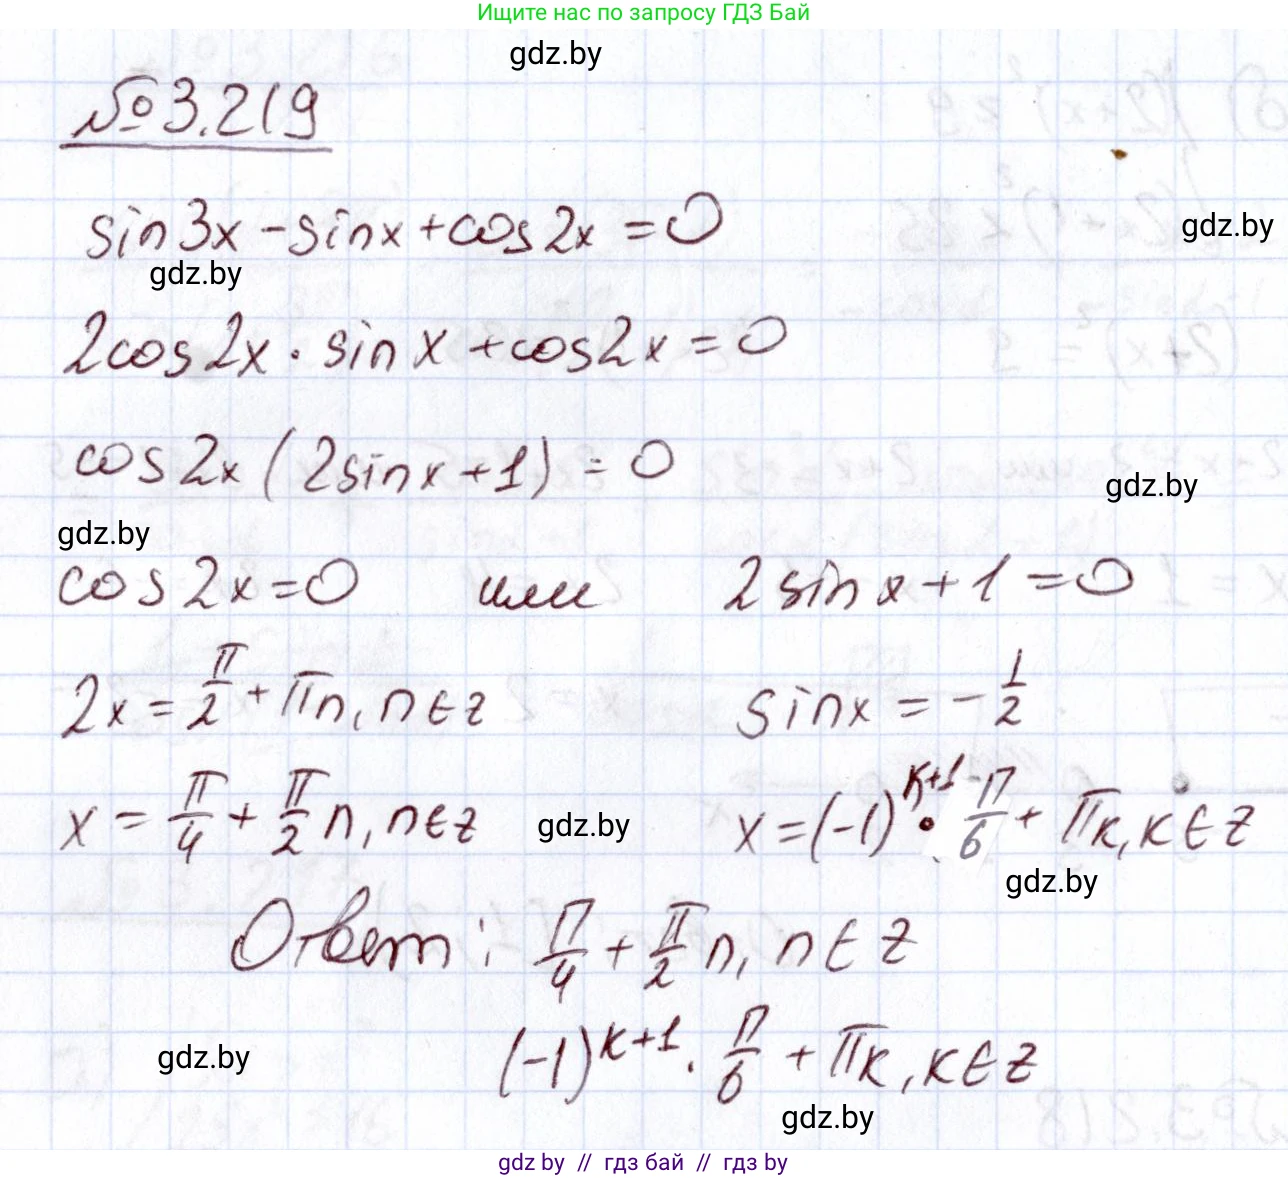 Ищите нас по запросу ГДЗ Бай
gdz.by
№ 3.219
gdz.by
sin3x - sinx + cos2x = 0
gdz.by
2cos2x · sin x + cos2x = 0
cos2x (2sinx + 1) = 0
gdz.by
gdz.by
cos2x = 0 или 2sinx + 1 = 0
2x = π/2 + πn, n∈z sinx = -1/2
x = π/4 + π/2 n, n∈z gdz.by x = (-1)^(k+1) · π/6 + πk, k∈z
gdz.by
Ответ: π/4 + π/2 n, n∈z
(-1)^(k+1) · π/6 + πk, k∈z
gdz.by
gdz.by
gdz by // гдз бай // гдз by